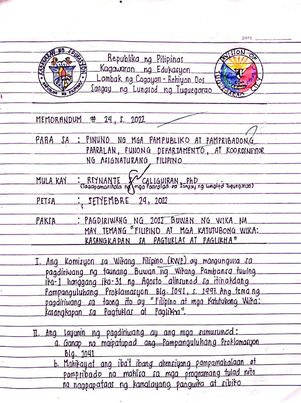 Republika ng Pilipinas
Kagawaran ng Edukasyon
Lambak ng Cagayan - Rehiyon Dos
Sangay ng Lungsod ng Tuguegarao
MEMORANDUM # 24, s. 2022
PARA SA : PINUNO NG MGA PAMPUBLIKO AT PAMPRIBADONG
PAARALAN, PUNONG DEPARTAMENTO, AT KOORDINEYTOR
NG ASIGNATURANG FILIPINO
MULA KAY : REYNANTE CALIGUIRAN, PhD
PETSA : SETYEMBRE 24, 2022
PAKSA : PAGDIRIWANG NG 2022 BUWAN NG WIKA NA
MAY TEMANG "FILIPINO AT MGA KATUTUBONG WIKA:
KASANGKAPAN SA PAGTUKLAS AT PAGLIKHA"
I. Ang Komisyon sa Wikang Filipino (KWF) ay mangunguna sa
pagdiriwang ng taunang Buwan ng Wikang Pambansa tuwing
ika-1 hanggang ika-31 ng Agosto alinsunod sa itinatadhang
Pampanguluhang Proklamasyon Blg. 1041, s. 1997. Ang tema ng
pagdiriwang sa taong ito ay "Filipino at mga Katutubong Wika:
kasangkapan sa Pagtuklas at Paglikha".
II. Ang layunin ng pagdiriwang ay ang mga sumusunod:
a. Ganap na maipatupad ang Pampanguluhang Proklamasyon
Blg. 1041
b. Mahikayat ang iba't ibang ahensiyang pampamahalaan at
pampribado na makiisa sa mga programang tulad nito
na nagpapataas ng kamalayang pangwika at sibiko